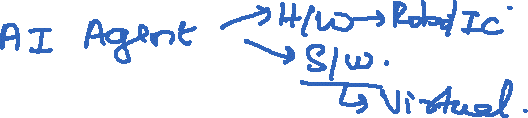 AI Agent → H/W → Robot/IC
→ S/W.
↳ Virtual.